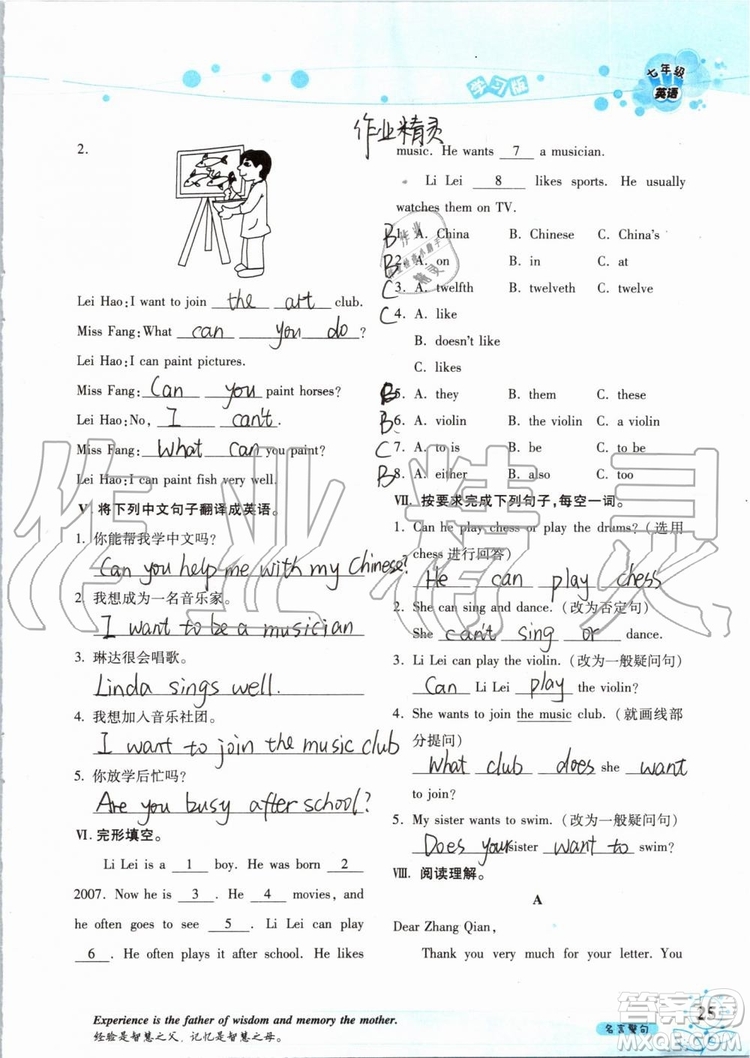 学习版
七年级
英语
作业精灵
2.
Lei Hao: I want to join the art club.
Miss Fang: What can you do?
Lei Hao: I can paint pictures.
Miss Fang: Can you paint horses?
Lei Hao: No, I can't.
Miss Fang: What can you paint?
Lei Hao: I can paint fish very well.
Ⅴ. 将下列中文句子翻译成英语。
1. 你能帮我学中文吗?
Can you help me with my Chinese?
2. 我想成为一名音乐家。
I want to be a musician
3. 琳达很会唱歌。
Linda sings well.
4. 我想加入音乐社团。
I want to join the music club
5. 你放学后忙吗?
Are you busy after school?
Ⅵ. 完形填空。
Li Lei is a 1 boy. He was born 2
2007. Now he is 3 . He 4 movies, and
he often goes to see 5 . Li Lei can play
6 . He often plays it after school. He likes
music. He wants 7 a musician.
Li Lei 8 likes sports. He usually
watches them on TV.
B 1. A. China B. Chinese C. China's
B 2. A. on B. in C. at
C 3. A. twelfth B. twelveth C. twelve
C 4. A. like
B. doesn't like
C. likes
B 5. A. they B. them C. these
B 6. A. violin B. the violin C. a violin
C 7. A. to is B. be C. to be
B 8. A. either B. also C. too
Ⅶ. 按要求完成下列句子,每空一词。
1. Can he play chess or play the drums? (选用
chess 进行回答)
He can play chess
2. She can sing and dance. (改为否定句)
She can't sing or dance.
3. Li Lei can play the violin. (改为一般疑问句)
Can Li Lei play the violin?
4. She wants to join the music club. (就画线部
分提问)
What club does she want
to join?
5. My sister wants to swim. (改为一般疑问句)
Does your sister want to swim?
Ⅷ. 阅读理解。
A
Dear Zhang Qian,
Thank you very much for your letter. You
Experience is the father of wisdom and memory the mother.
经验是智慧之父,记忆是智慧之母。
名言警句
25
作业精灵